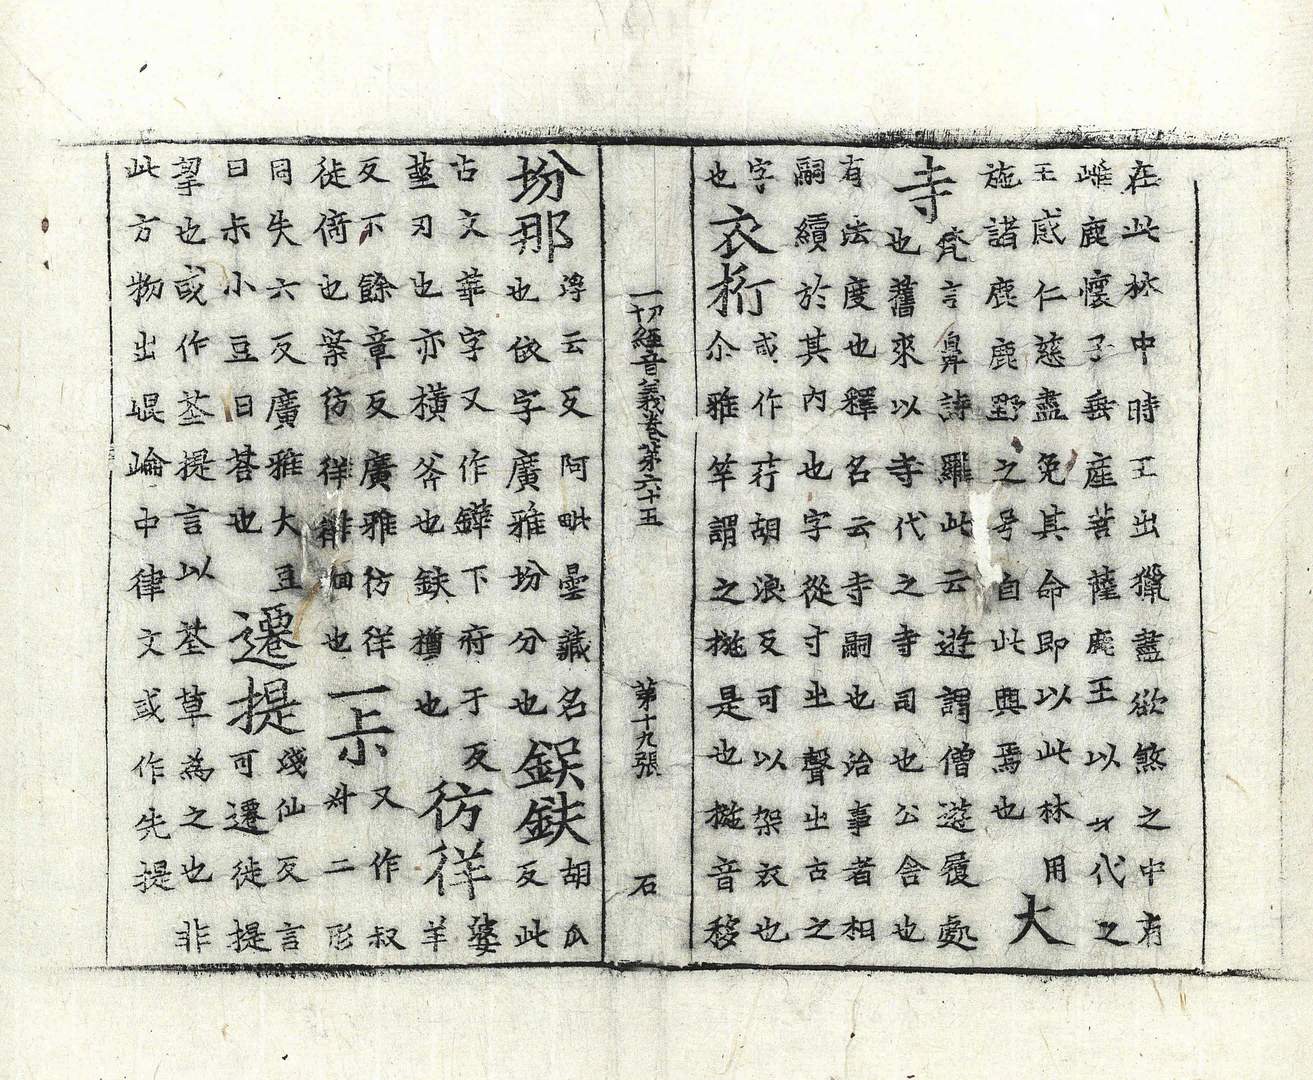 在此林中時王出獵盡欲煞之中有
雌鹿懷子垂産菩薩鹿王以身代之
王感仁慈盡免其命即以此林用
施諸鹿鹿野之号自此興焉也 大
寺 梵言鼻訶羅此云遊謂僧遊履處
也舊來以寺代之寺司也公舍也
有法度也釋名云寺嗣也治事者相
嗣續於其內也字從寸㞢聲㞢古之
字
也 衣桁 或作荇胡浪反可以架衣也
尒雅竿謂之椸是也椸音移
一切經音義卷第六十五 第十九張 石
坋那 浮云反阿毗曇藏名
也依字廣雅坋分也 鋘鈇 胡瓜
反此
古文華字又作鏵下府于反
莖刃也亦橫斧也鈇櫍也 彷徉 婆
羊
反下餘章反廣雅彷徉
徙倚也案彷徉徘徊也 一尗 又作叔
尗二形
同失六反廣雅大豆
曰尗小豆曰荅也 遷提 淺仙反言
可遷徙提
挈也或作荃提言以荃草為之也非
此方物出崐崘中律文或作先提